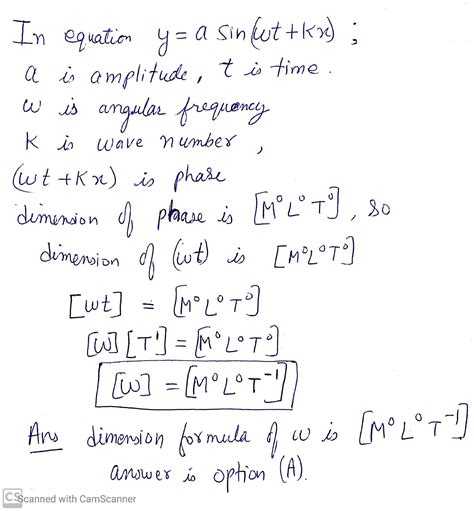 In equation y = a sin(ωt + Kx) ;
a is amplitude, t is time.
ω is angular frequency
K is wave number,
(ωt + Kx) is phase
dimension of phase is [M⁰L⁰T⁰], so
dimension of (ωt) is [M⁰L⁰T⁰]
[ωt] = [M⁰L⁰T⁰]
[ω] [T¹] = [M⁰L⁰T⁰]
[ω] = [M⁰L⁰T⁻¹]
Ans dimension formula of ω is [M⁰L⁰T⁻¹]
answer is option (A).
CS Scanned with CamScanner